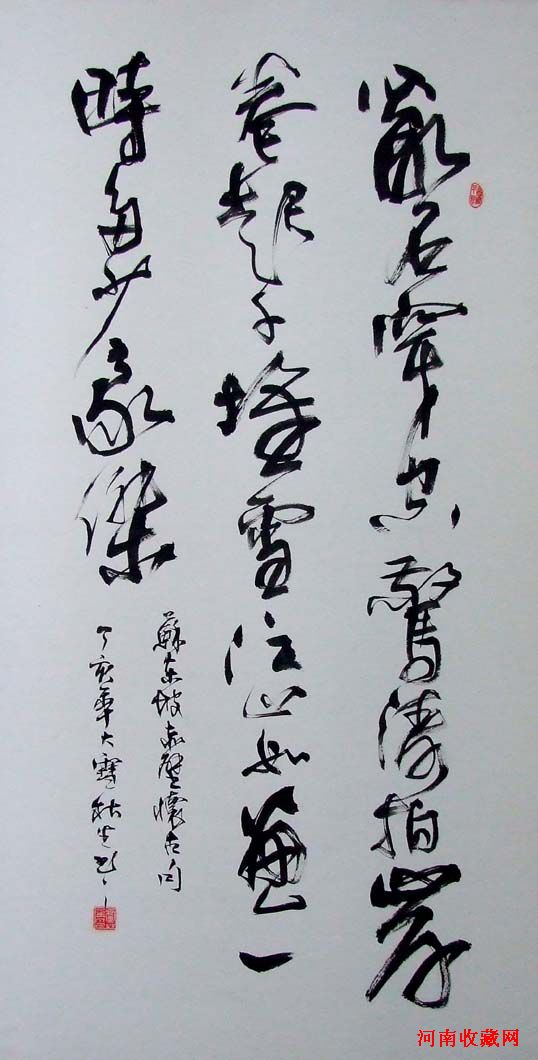 亂石穿空驚濤拍岸
卷起千堆雪江山如畫一
時多少豪傑
蘇東坡赤壁懷古句
丁亥年大雪
河南收藏网